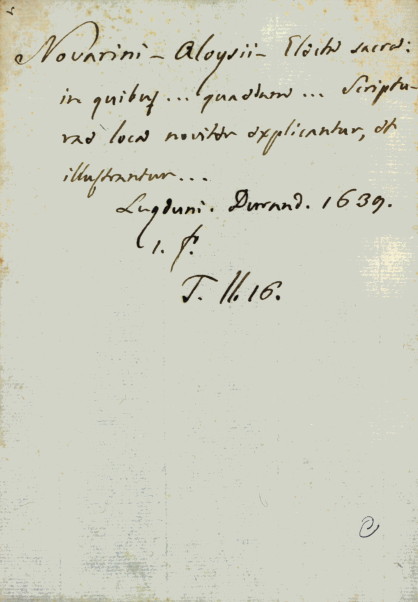 Novarini - Aloysii - Electa sacra:
in quibus ... quædam ... Scriptu-
ræ loca noviter explicantur, et
illustrantur ...
Lugduni. Durand. 1639.
1. f.
T. II. 16.